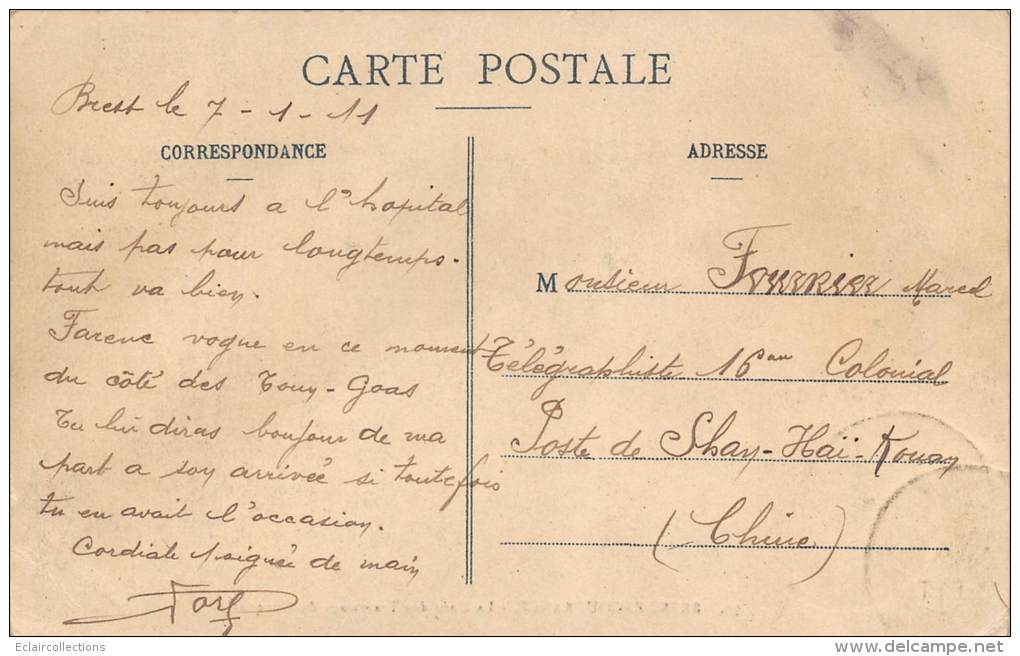 CARTE POSTALE
Brest le 7-1-11
CORRESPONDANCE
Suis toujours a l'hopital
mais pas pour longtemps.
tout va bien.
Farenc vogue en ce moment
du côté des Touy-Goas
Tu lui diras bonjour de ma
part a son arrivée si toutefois
tu en avait l'occasion.
Cordiale poignée de main
ADRESSE
Monsieur Fourrier Marcel
Télégraphiste 16eme Colonial
Poste de Shan-Haï-Kouan
(Chine)
Eclaircollections
delcampe.net